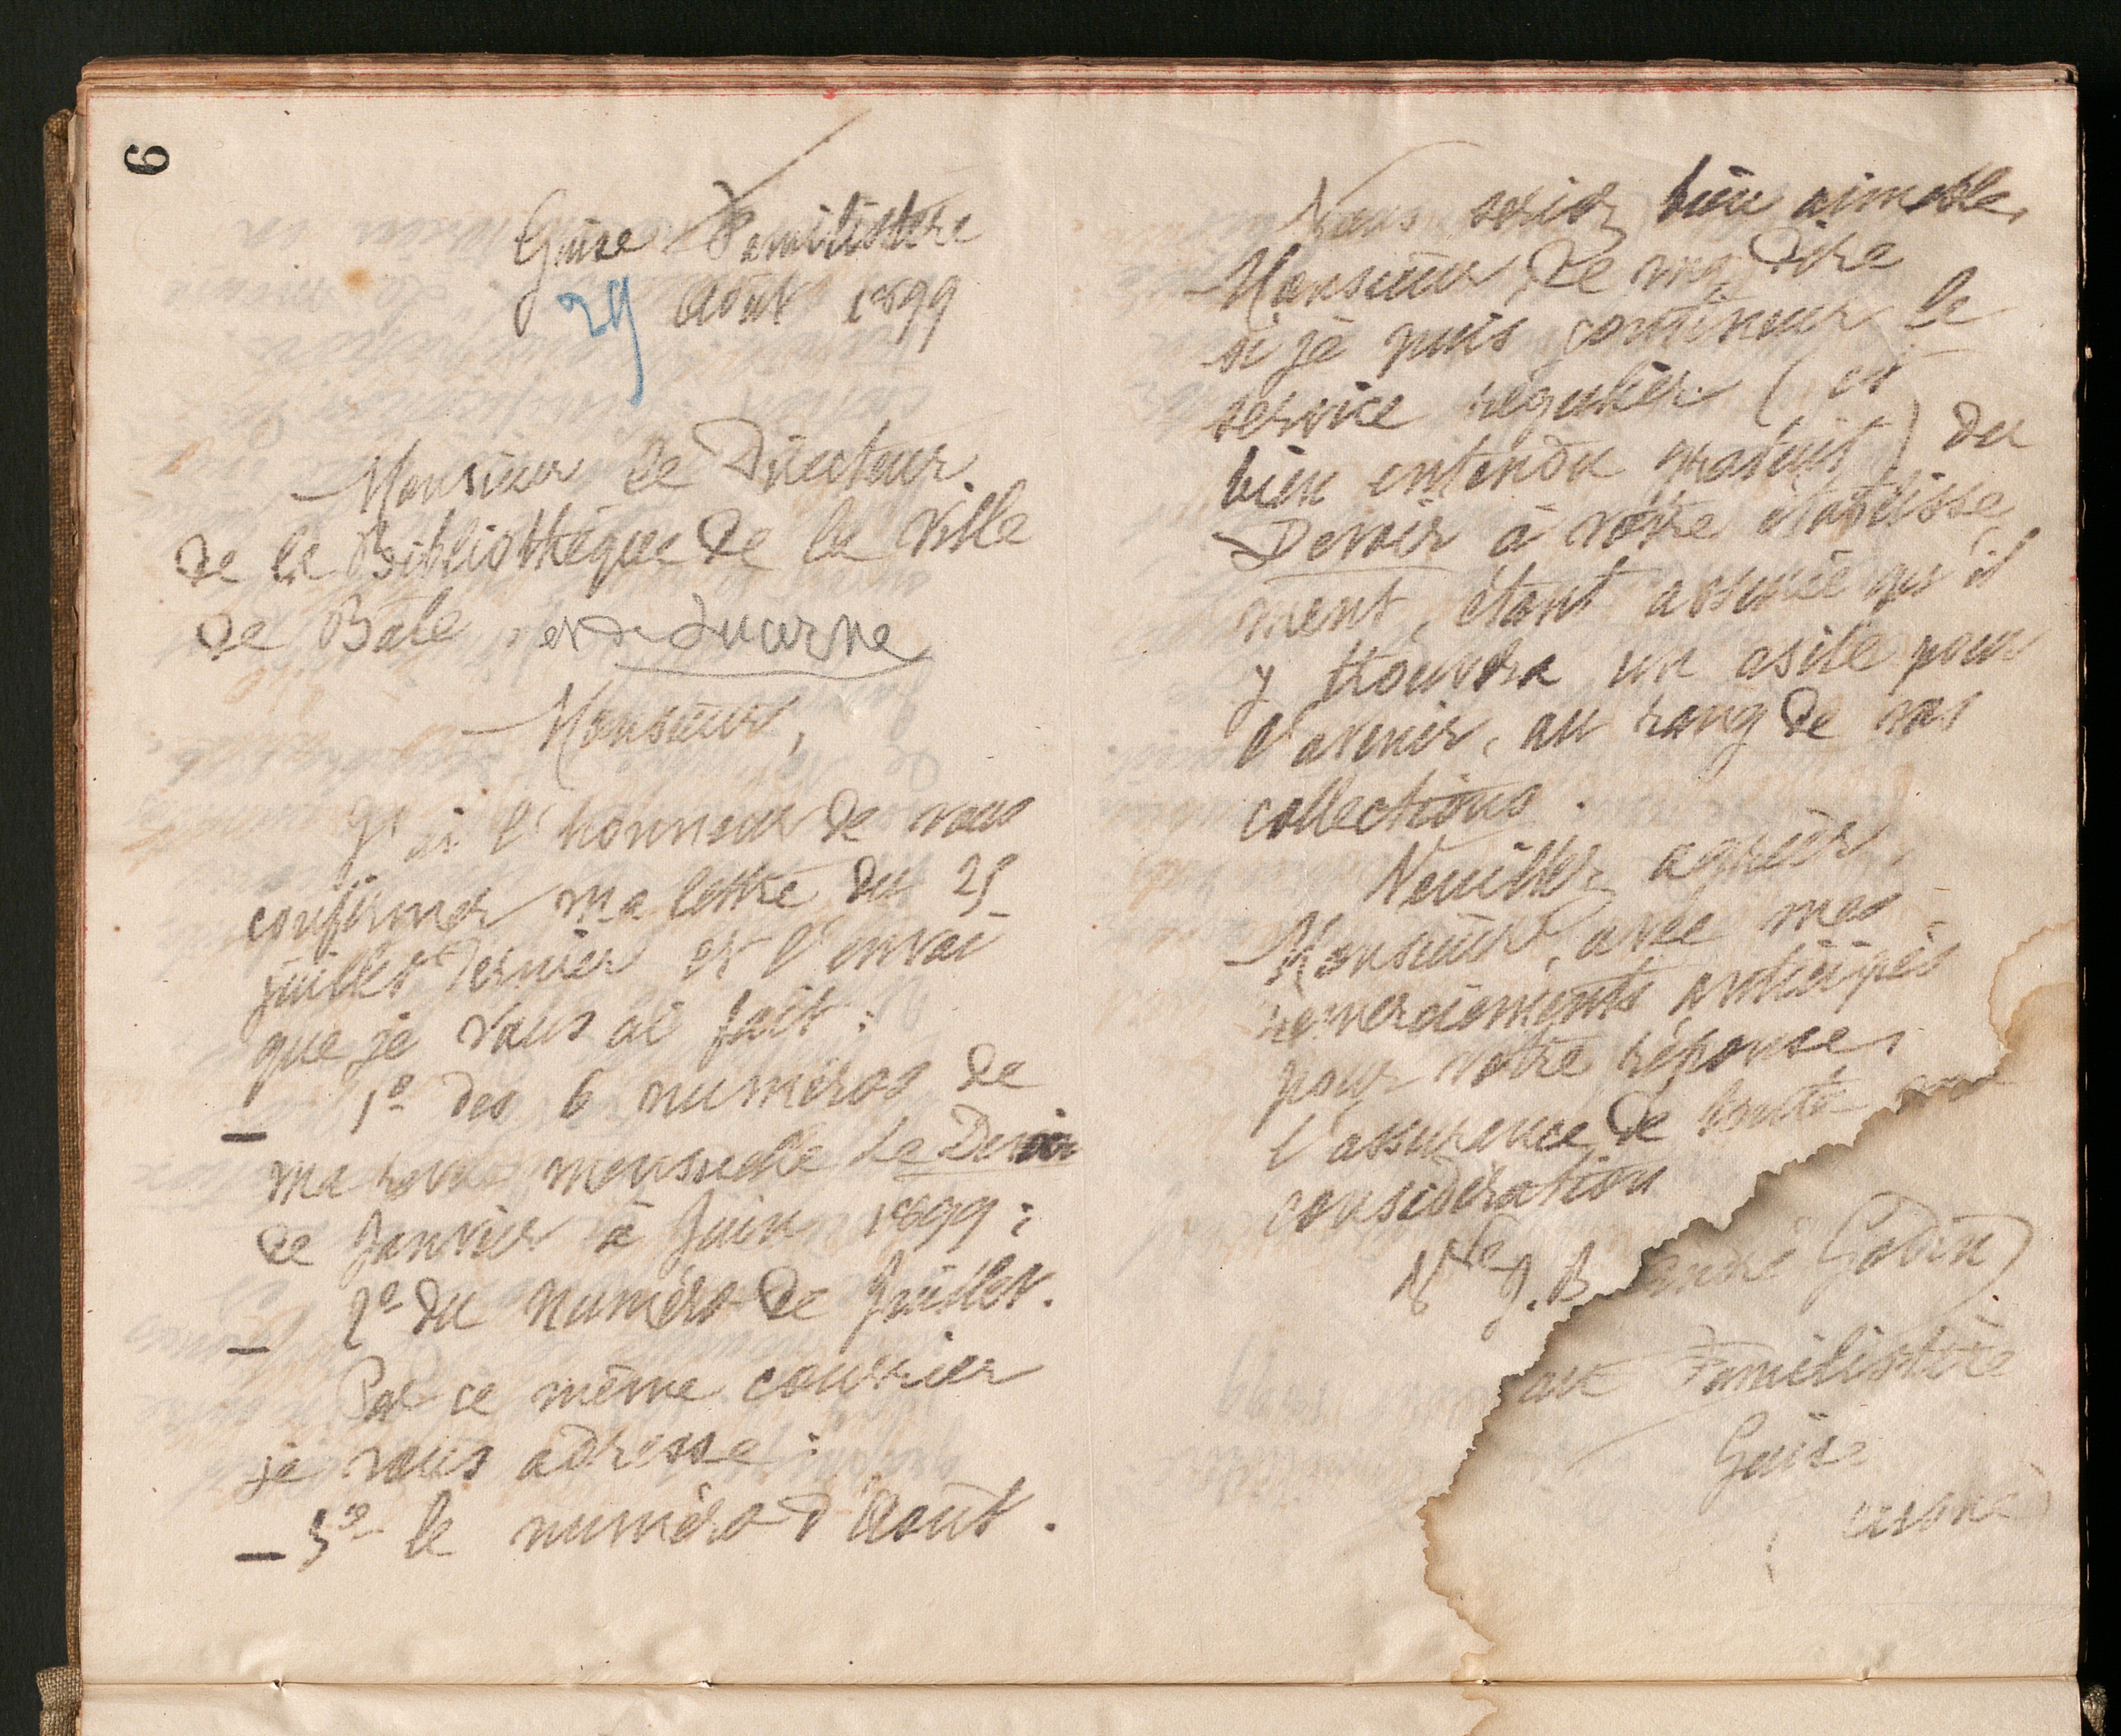 6
Guise Familistère
29 Août 1899
Monsieur le Directeur
de la Bibliothèque de la Ville
de Bâle et de Lucerne
Monsieur,
J'ai l'honneur de vous
confirmer ma lettre du 25
juillet dernier et l'envoi
que je vous ai fait :
— 1º des 6 numéros de
ma revue mensuelle Le Devoir
de Janvier à Juin 1899 ;
— 2º du numéro de Juillet.
Par ce même courrier
je vous adresse :
— 3º le numéro d'Août.
Vous seriez bien aimable,
Monsieur, de me dire
si je puis continuer le
service régulier (et
bien entendu gratuit) du
Devoir à votre établisse
ment, étant assurée qu'il
y trouvera un asile pour
l'avenir, au rang de vos
collections.
Veuillez agréer,
Monsieur, avec mes
remerciements anticipés
pour votre réponse,
l'assurance de toute ma
considération
Vve J. B. André Godin
au Familistère
Guise
(Aisne)